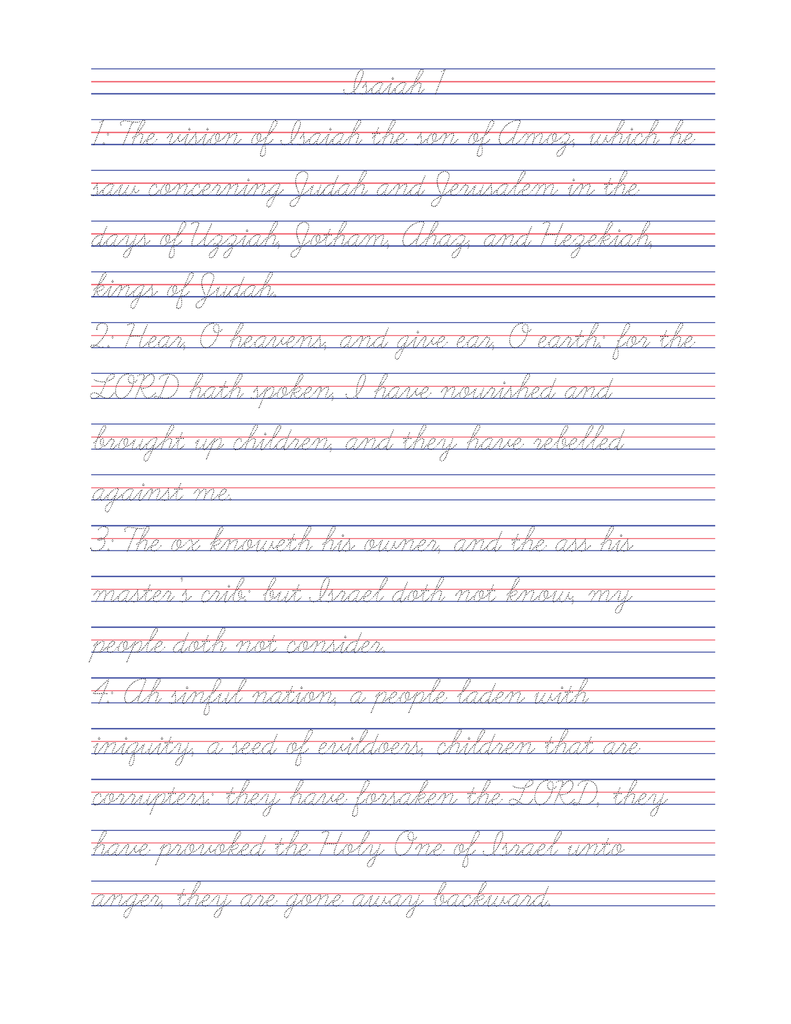 Isaiah 1
1: The vision of Isaiah the son of Amoz, which he
saw concerning Judah and Jerusalem in the
days of Uzziah, Jotham, Ahaz, and Hezekiah,
kings of Judah.
2: Hear, O heavens, and give ear, O earth: for the
LORD hath spoken, I have nourished and
brought up children, and they have rebelled
against me.
3: The ox knoweth his owner, and the ass his
master's crib: but Israel doth not know, my
people doth not consider.
4: Ah sinful nation, a people laden with
iniquity, a seed of evildoers, children that are
corrupters: they have forsaken the LORD, they
have provoked the Holy One of Israel unto
anger, they are gone away backward.